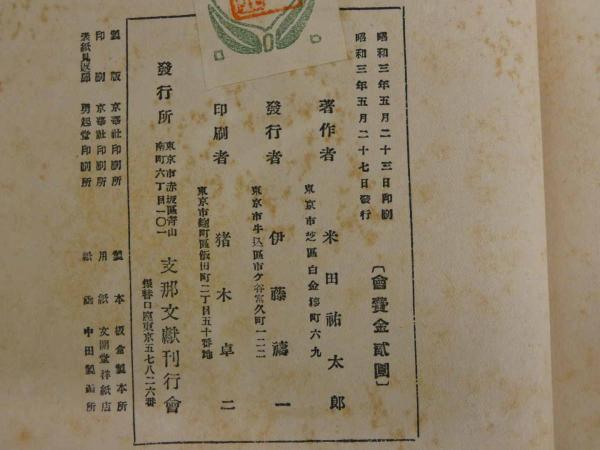 昭和三年五月二十三日印刷
昭和三年五月二十七日發行
〔會費金貳圓〕
著作者
東京市芝區白金
町六九
米田祐太郎
發行者
東京市牛込區市ケ谷富久町一二二
伊藤禱一
印刷者
東京市麹町區飯田町二丁目五十番地
猪木卓二
發行所
東京市赤坂區青山
南町六丁目一〇一
支那文獻刊行會
振替口座東京五七八二六番
製版 京華社印刷所
印刷 京華社印刷所
表紙見返扉 勇起堂印刷所
製本 板倉製本所
用紙 文開堂洋紙店
紙函 中田製函所